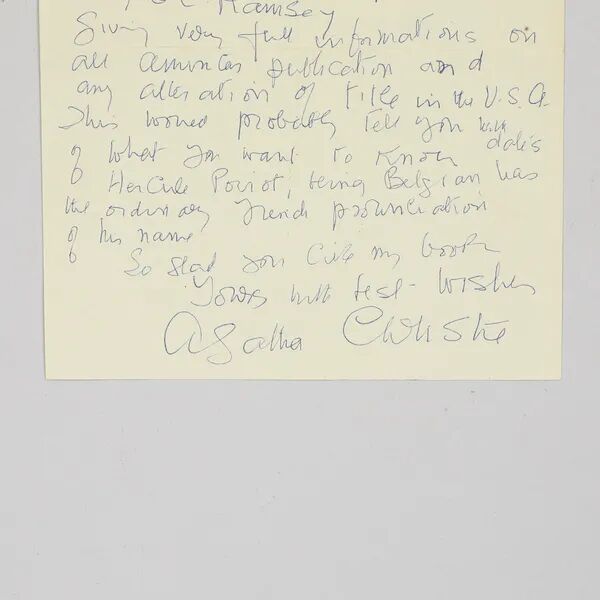 Ramsey
Giving very full informations on
all American publication and
any alteration of title in the U.S.A.
This would probably tell you with dates
of what you want to know
Hercule Poirot, being Belgian has
the ordinary French pronunciation
of his name
So glad you like my books
Yours with best wishes
Agatha Christie